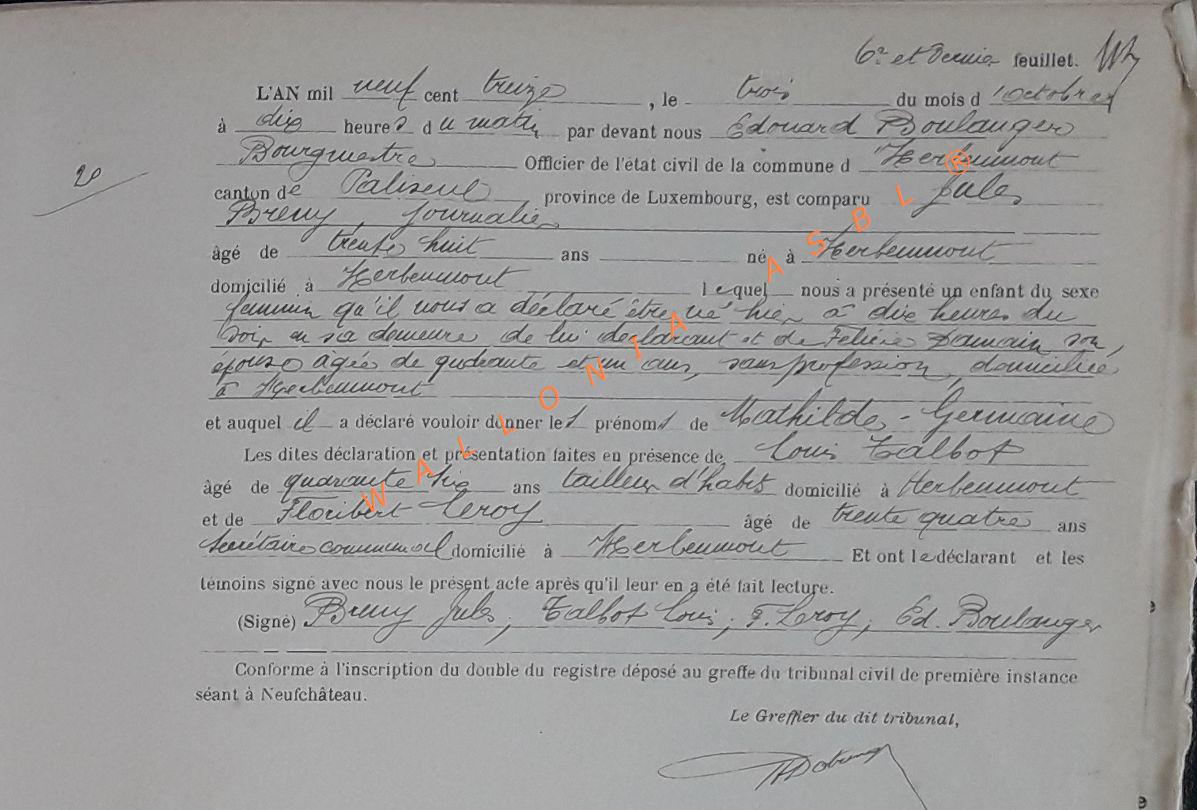 6e et Dernier feuillet.
L'AN mil neuf cent treize, le trois du mois d'octobre
à dix heures du matin par devant nous Edouard Boulanger
Bourgmestre Officier de l'état civil de la commune d'Herbeumont
20
canton de Paliseul province de Luxembourg, est comparu Jules
Breny, journalier
âgé de trente huit ans né à Herbeumont
domicilié à Herbeumont lequel nous a présenté un enfant du sexe
feminin qu'il nous a déclaré être né hier à dix heures du
soir en sa demeure, de lui déclarant et de Felicie Damain son
épouse agée de quarante et un ans, sans profession, domiciliée
à Herbeumont
et auquel il a déclaré vouloir donner les prénoms de Mathilde-Germaine
Les dites déclaration et présentation faites en présence de Louis Talbot
âgé de quarante six ans tailleur d'habits domicilié à Herbeumont
et de Floribert Leroy âgé de trente quatre ans
Secrétaire communal domicilié à Herbeumont Et ont le déclarant et les
témoins signé avec nous le présent acte après qu'il leur en a été fait lecture.
(Signé) Breny Jules, Talbot Louis, F. Leroy, Ed. Boulanger
Conforme à l'inscription du double du registre déposé au greffe du tribunal civil de première instance
séant à Neufchâteau.
Le Greffier du dit tribunal,
WALLONIA ASBL ®